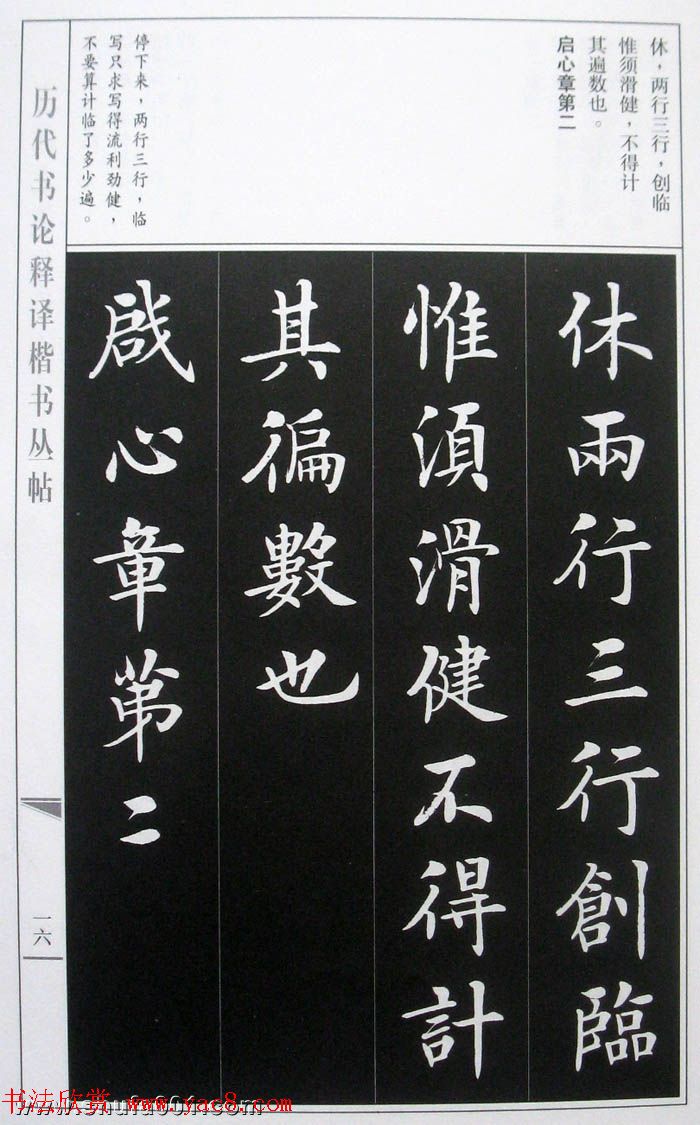 休，两行三行，创临
惟须滑健，不得计
其遍数也。
启心章第二
停下来，两行三行，临
写只求写得流利劲健，
不要算计临了多少遍。
休兩行三行創臨
惟須滑健不得計
其徧數也
啟心章第二
历代书论释译楷书丛帖
一六
书法欣赏 www.yac8.com